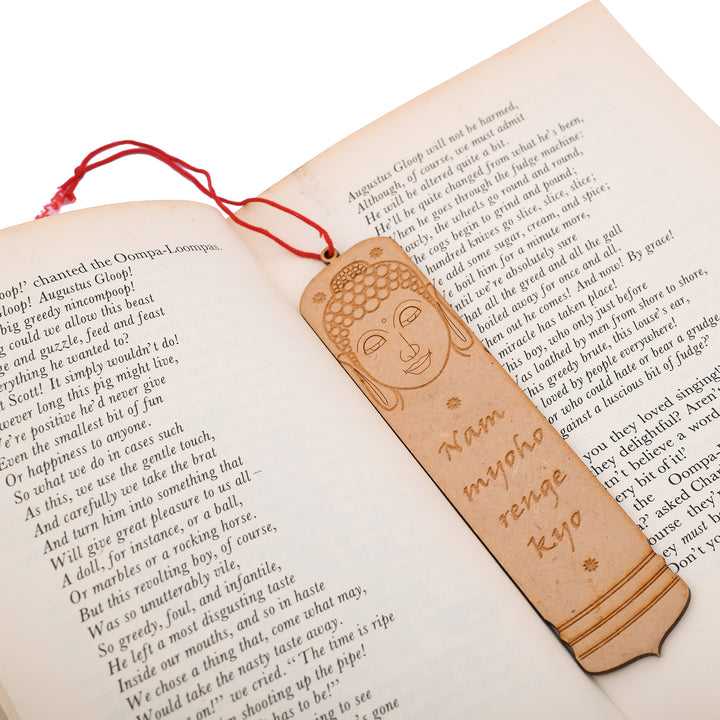 chanted the Oompa-Loompas.
Augustus Gloop!
big greedy nincompoop!
could we allow this beast
and guzzle, feed and feast
everything he wanted to?
Scott! It simply wouldn't do!
However long this pig might live,
We're positive he'd never give
Even the smallest bit of fun
Or happiness to anyone.
So what we do in cases such
As this, we use the gentle touch,
And carefully we take the brat
And turn him into something that
Will give great pleasure to us all –
A doll, for instance, or a ball,
Or marbles or a rocking horse.
But this revolting boy, of course,
Was so unutterably vile,
So greedy, foul, and infantile,
He left a most disgusting taste
Inside our mouths, and so in haste
We chose a thing that, come what may,
Would take the nasty taste away.
on!" we cried. "The time is ripe
shooting up the pipe!
has to be!"
going to see
gone
Augustus Gloop will not be harmed,
Although, of course, we must admit
He will be altered quite a bit.
He'll be quite changed from what he's been,
When he goes through the fudge machine:
Slowly, the wheels go round and round,
cogs begin to grind and pound;
hundred knives go slice, slice, slice;
add some sugar, cream, and spice;
boil him for a minute more,
until we're absolutely sure
that all the greed and all the gall
boiled away for once and all.
then out he comes! And now! By grace!
miracle has taken place!
this boy, who only just before
was loathed by men from shore to shore,
This greedy brute, this louse's ear,
loved by people everywhere!
who could hate or bear a grudge
against a luscious bit of fudge?"
you they loved singing!
they delightful?
believe a word
bit of it?'
the Oompa-
asked
they're
must
Don't you
Nam
myoho
renge
kyo